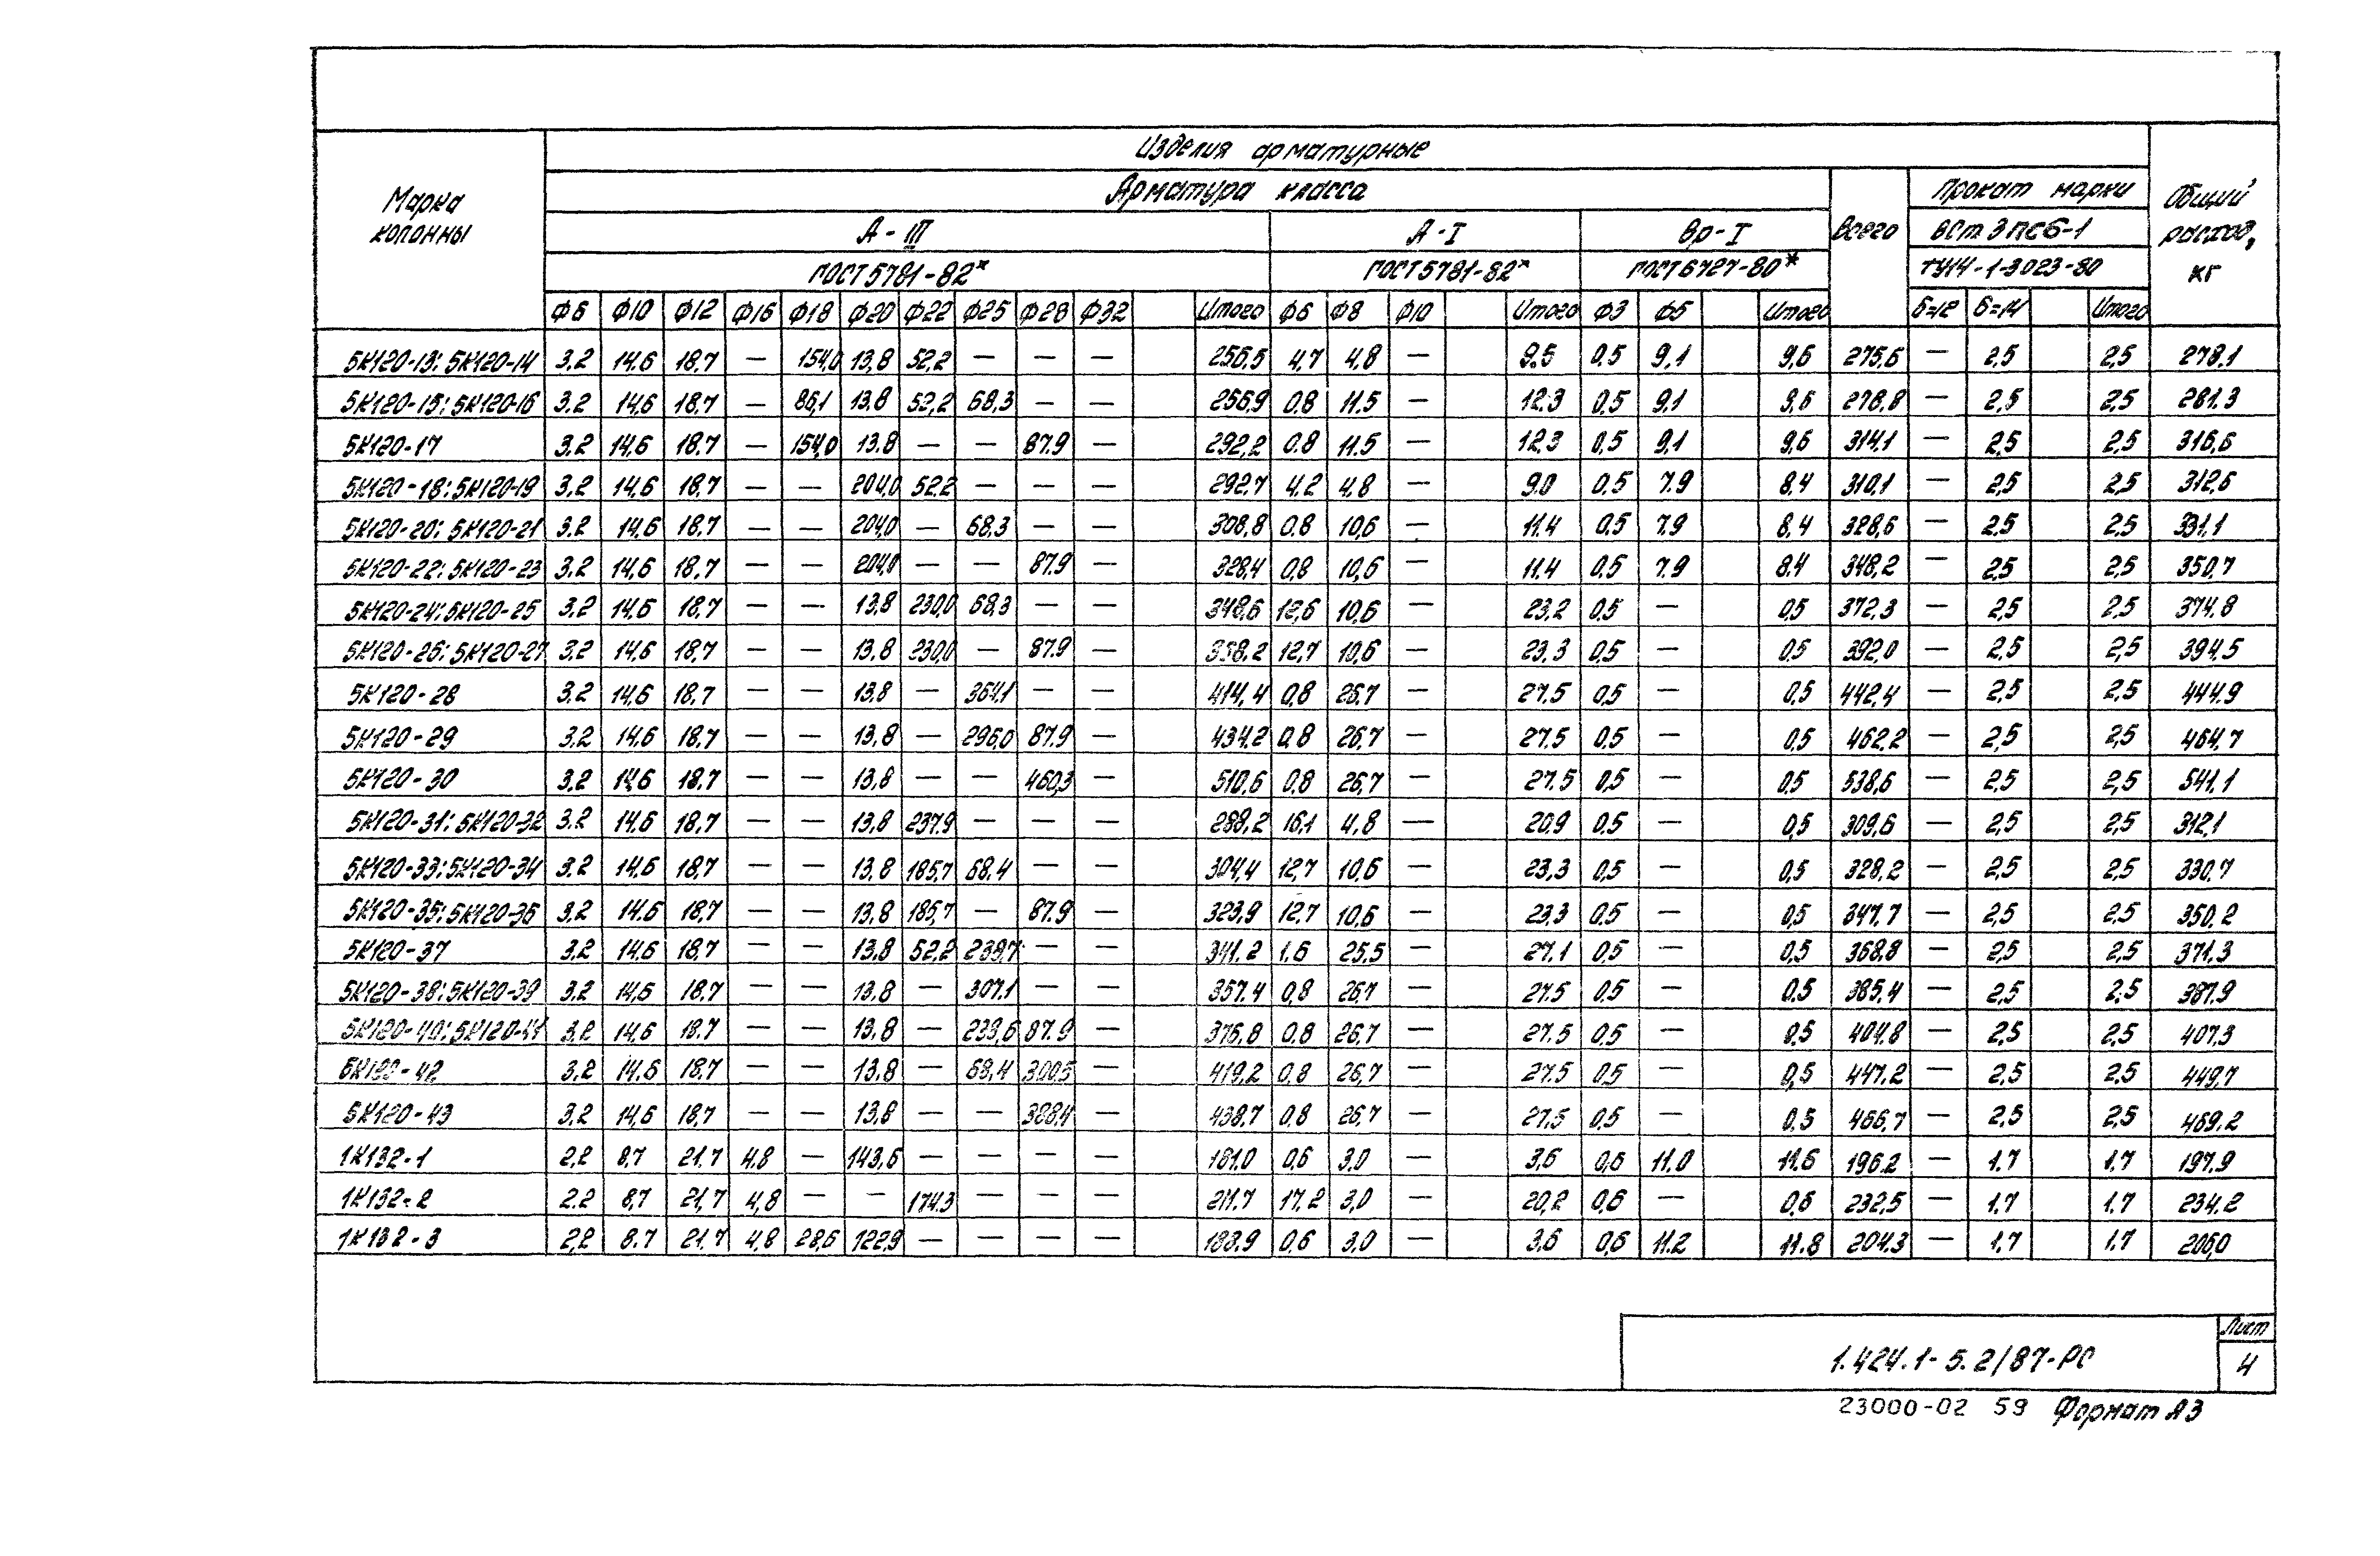 Изделия арматурные
Марка колонны
Арматура класса
Всего
Прокат марки
Общий расход, кг
А-III
А-I
Вр-I
ВСт3пс6-1
ГОСТ 5781-82*
ГОСТ 5781-82*
ГОСТ 6727-80*
ТУ14-1-3023-80
Ф6 Ф10 Ф12 Ф16 Ф18 Ф20 Ф22 Ф25 Ф28 Ф32 Итого Ф6 Ф8 Ф10 Итого Ф3 Ф5 Итого б=12 б=14 Итого
5К120-13; 5К120-14 3,2 14,6 18,7 — 154,0 13,8 52,2 — — — 256,5 4,7 4,8 — 9,5 0,5 9,1 9,6 275,6 — 2,5 2,5 278,1
5К120-15; 5К120-16 3,2 14,6 18,7 — 86,1 13,8 52,2 68,3 — — 256,9 0,8 11,5 — 12,3 0,5 9,1 9,6 278,8 — 2,5 2,5 281,3
5К120-17 3,2 14,6 18,7 — 154,0 13,8 — — 87,9 — 292,2 0,8 11,5 — 12,3 0,5 9,1 9,6 314,1 — 2,5 2,5 316,6
5К120-18; 5К120-19 3,2 14,6 18,7 — — 204,0 52,2 — — — 292,7 4,2 4,8 — 9,0 0,5 7,9 8,4 310,1 — 2,5 2,5 312,6
5К120-20; 5К120-21 3,2 14,6 18,7 — — 204,0 — 68,3 — — 308,8 0,8 10,6 — 11,4 0,5 7,9 8,4 328,6 — 2,5 2,5 331,1
5К120-22; 5К120-23 3,2 14,6 18,7 — — 204,0 — — 87,9 — 328,4 0,8 10,6 — 11,4 0,5 7,9 8,4 348,2 — 2,5 2,5 350,7
5К120-24; 5К120-25 3,2 14,6 18,7 — — 13,8 230,0 68,3 — — 348,6 12,6 10,6 — 23,2 0,5 — 0,5 372,3 — 2,5 2,5 374,8
5К120-26; 5К120-27 3,2 14,6 18,7 — — 13,8 230,0 — 87,9 — 368,2 12,7 10,6 — 23,3 0,5 — 0,5 392,0 — 2,5 2,5 394,5
5К120-28 3,2 14,6 18,7 — — 13,8 — 364,1 — — 414,4 0,8 26,7 — 27,5 0,5 — 0,5 442,4 — 2,5 2,5 444,9
5К120-29 3,2 14,6 18,7 — — 13,8 — 296,0 87,9 — 434,2 0,8 26,7 — 27,5 0,5 — 0,5 462,2 — 2,5 2,5 464,7
5К120-30 3,2 14,6 18,7 — — 13,8 — — 460,3 — 510,6 0,8 26,7 — 27,5 0,5 — 0,5 538,6 — 2,5 2,5 541,1
5К120-31; 5К120-32 3,2 14,6 18,7 — — 13,8 237,9 — — — 288,2 16,1 4,8 — 20,9 0,5 — 0,5 309,6 — 2,5 2,5 312,1
5К120-33; 5К120-34 3,2 14,6 18,7 — — 13,8 185,7 68,4 — — 304,4 12,7 10,6 — 23,3 0,5 — 0,5 328,2 — 2,5 2,5 330,7
5К120-35; 5К120-36 3,2 14,6 18,7 — — 13,8 185,7 — 87,9 — 323,9 12,7 10,6 — 23,3 0,5 — 0,5 347,7 — 2,5 2,5 350,2
5К120-37 3,2 14,6 18,7 — — 13,8 52,2 238,7 — — 341,2 1,6 25,5 — 27,1 0,5 — 0,5 368,8 — 2,5 2,5 371,3
5К120-38; 5К120-39 3,2 14,6 18,7 — — 13,8 — 307,1 — — 357,4 0,8 26,7 — 27,5 0,5 — 0,5 385,4 — 2,5 2,5 387,9
5К120-40; 5К120-41 3,2 14,6 18,7 — — 13,8 — 238,6 87,9 — 376,8 0,8 26,7 — 27,5 0,5 — 0,5 404,8 — 2,5 2,5 407,3
5К120-42 3,2 14,6 18,7 — — 13,8 — 68,4 300,5 — 419,2 0,8 26,7 — 27,5 0,5 — 0,5 447,2 — 2,5 2,5 449,7
5К120-43 3,2 14,6 18,7 — — 13,8 — — 388,4 — 438,7 0,8 26,7 — 27,5 0,5 — 0,5 466,7 — 2,5 2,5 469,2
1К132-1 2,2 8,7 21,7 4,8 — 143,6 — — — — 181,0 0,6 3,0 — 3,6 0,6 11,0 11,6 196,2 — 1,7 1,7 197,9
1К132-2 2,2 8,7 21,7 4,8 — — 174,3 — — — 211,7 17,2 3,0 — 20,2 0,6 — 0,6 232,5 — 1,7 1,7 234,2
1К132-3 2,2 8,7 21,7 4,8 28,6 122,9 — — — — 188,9 0,6 3,0 — 3,6 0,6 11,2 11,8 204,3 — 1,7 1,7 206,0
1.424.1-5.2/87-РС
Лист
4
23000-02 59 Формат А3